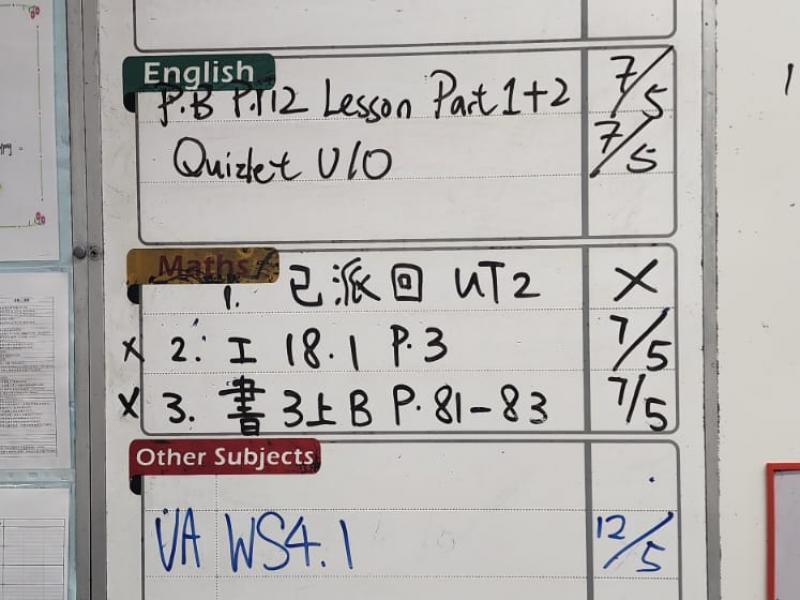 English
P.B P.112 Lesson Part 1+2 7/5
Quizlet U10 7/5
Maths
1. 已派回 UT2 X
X 2. 工 18.1 P.3 7/5
X 3. 書 3上B P.81-83 7/5
Other Subjects
VA WS4.1 12/5